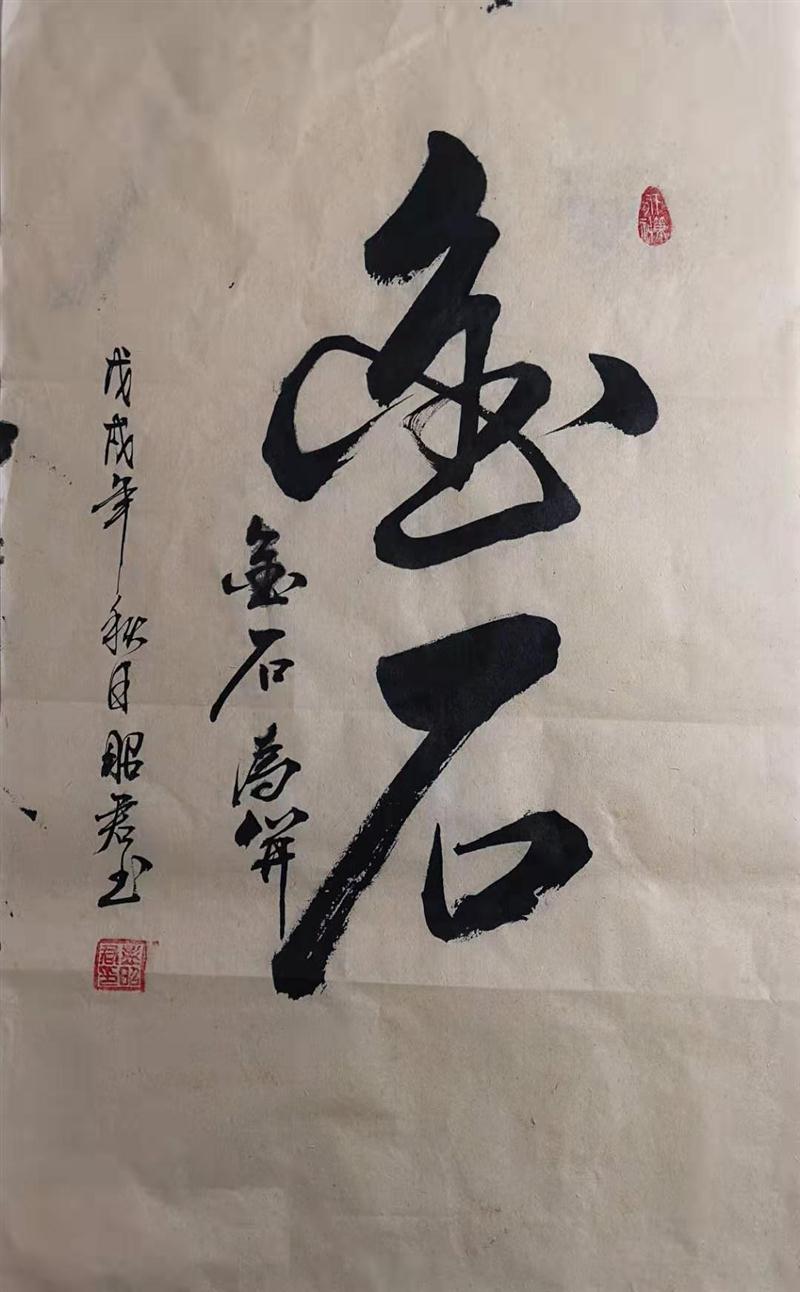 金石
金石為開
戊戌年秋月昭君书